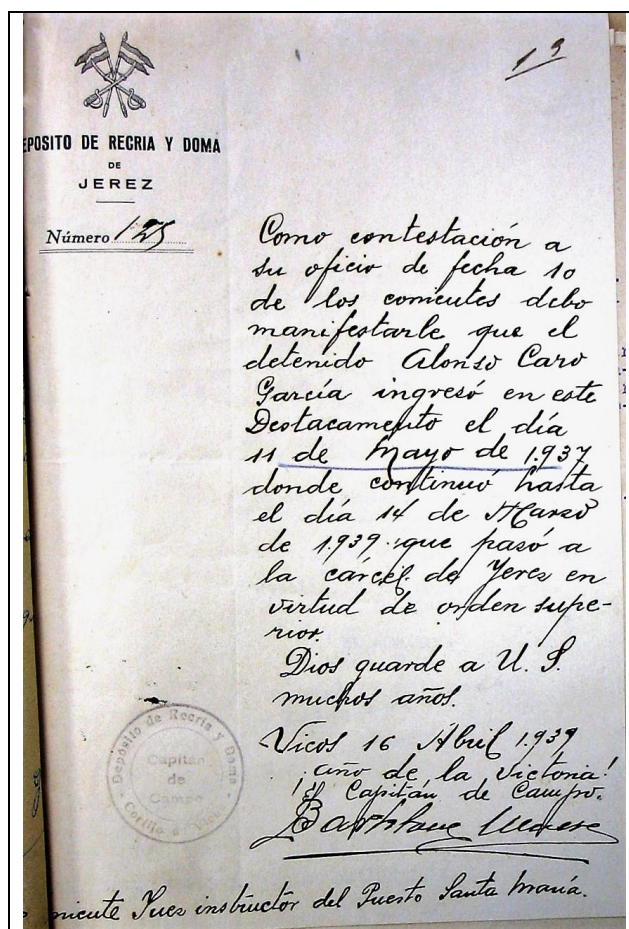 19
DEPOSITO DE RECRIA Y DOMA
DE
JEREZ
Número 125
Como contestación a
su oficio de fecha 10
de los corrientes debo
manifestarle que el
detenido Alonso Caro
García ingresó en este
Destacamento el día
11 de Mayo de 1.937
donde continuó hasta
el día 14 de Marzo
de 1.939 que pasó a
la cárcel de Yerez en
virtud de orden supe-
rior.
Dios guarde a U. S.
muchos años.
Vicos 16 Abril 1.939
¡año de la Victoria!
El Capitán de Campo.
Depósito de Recría y Doma
Capitán
de
Campo
Juez instructor del Puerto Santa María.